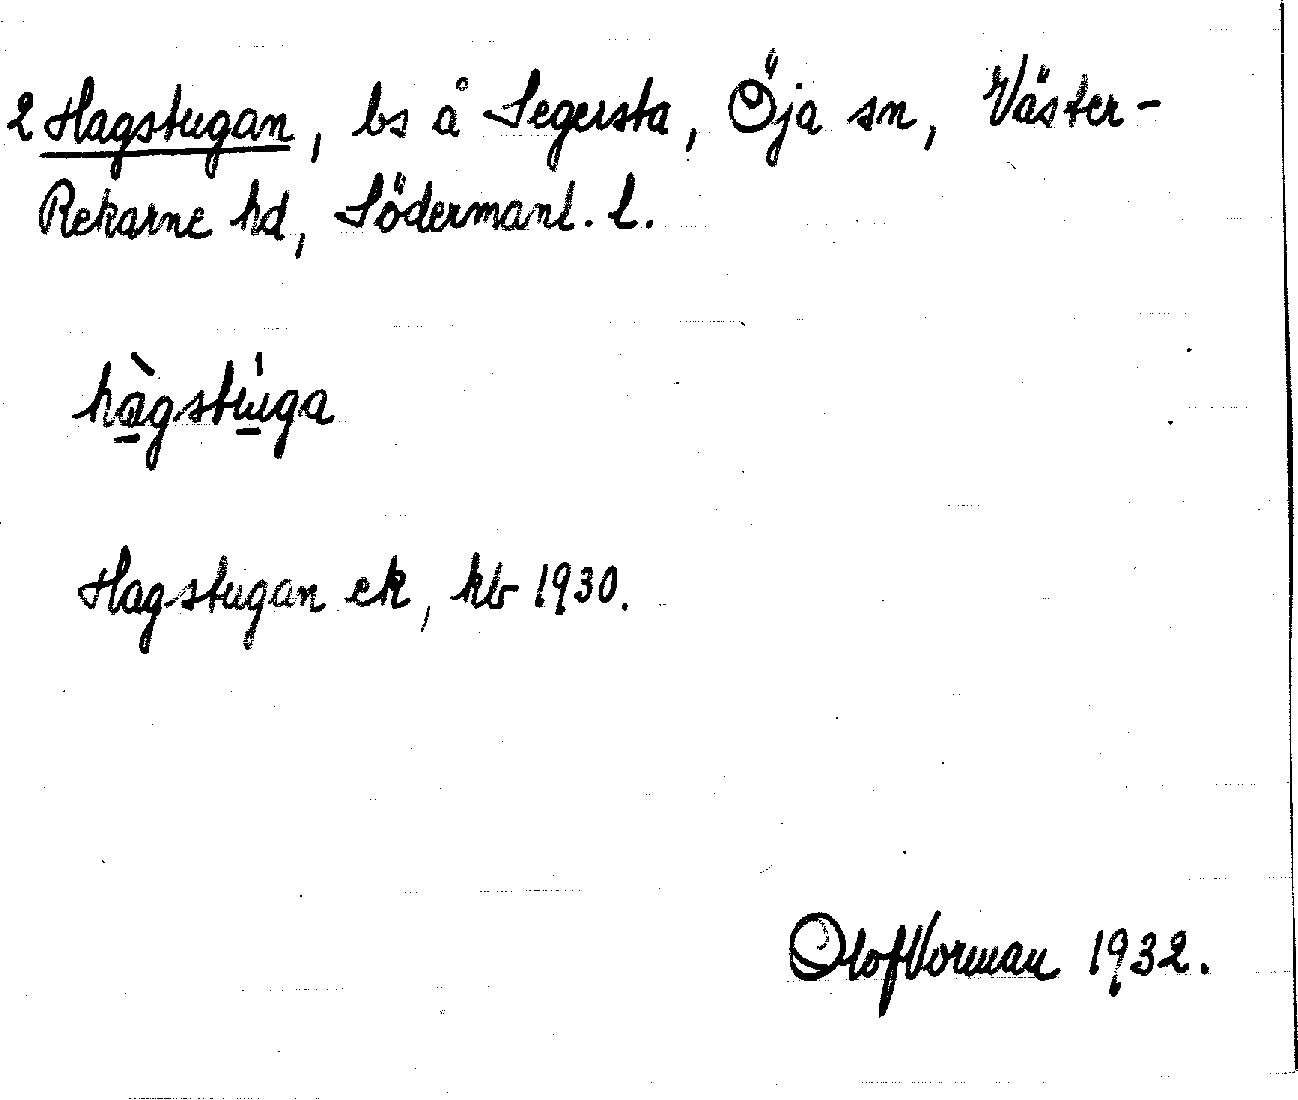 2 Hagstugan, bs å Segersta, Öja sn, Väster-
Rekarne hd, Södermanl. l.
hàgstúga
Hagstugan ek, kb 1930.
Olof Vorman 1932.